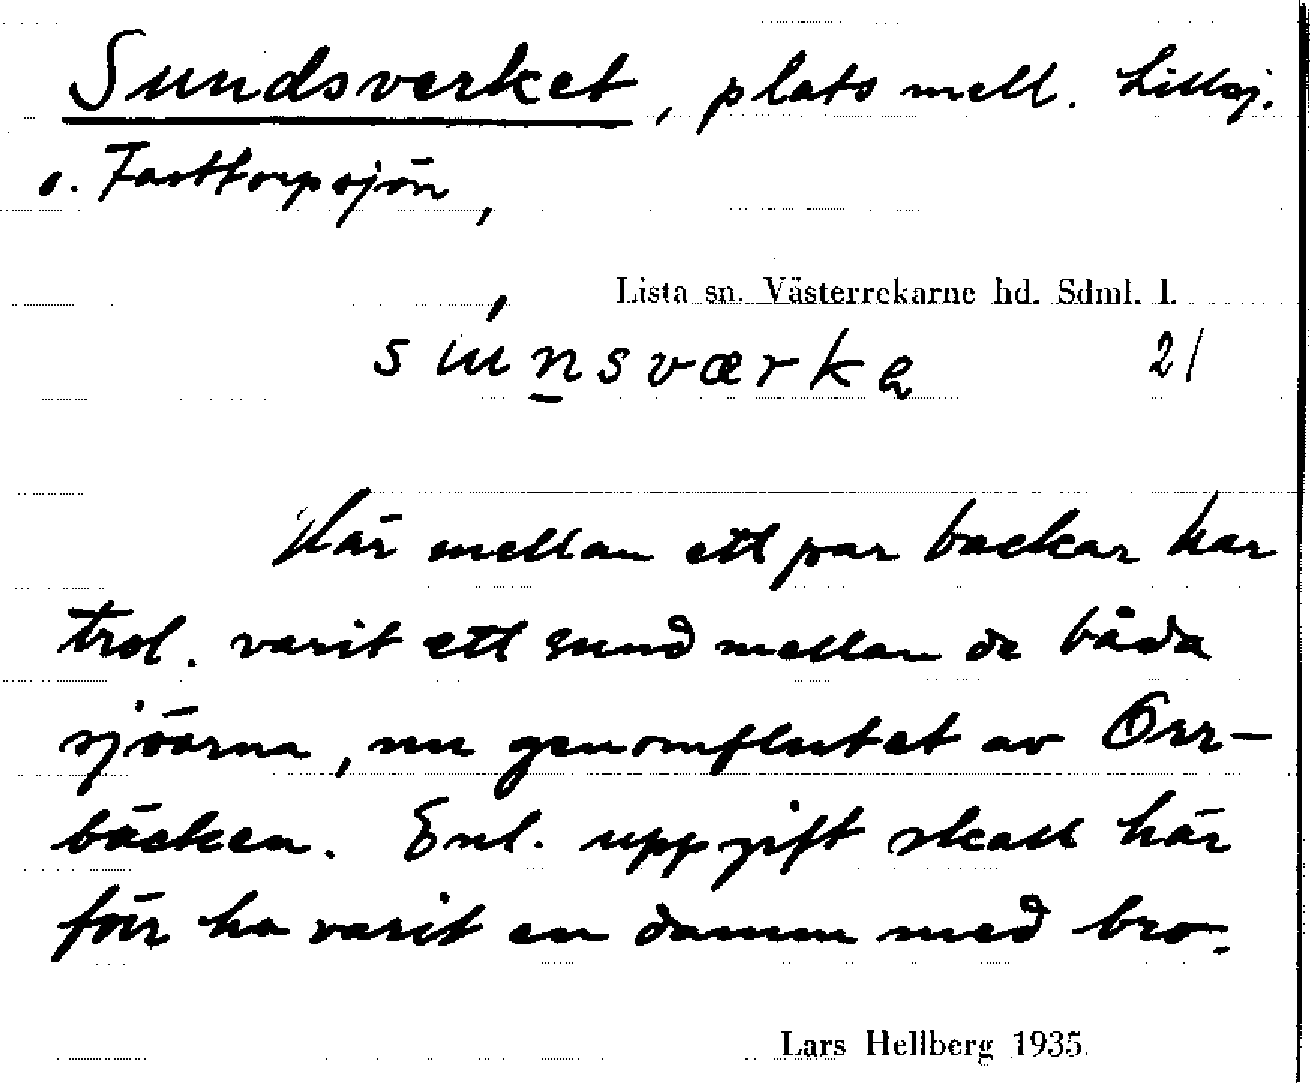 Sundsverket, plats mell. Lillsj.
o. Fasttorpsjön,
Lista sn. Västerrekarne hd. Sdml. l.
sunsværka 21
Här mellan ett par backar har
trol. varit ett sund mellan de båda
sjöarna, nu genomflutet av Orr-
bäcken. Enl. uppgift skall här
förr ha varit en damm med bro.
Lars Hellberg 1935